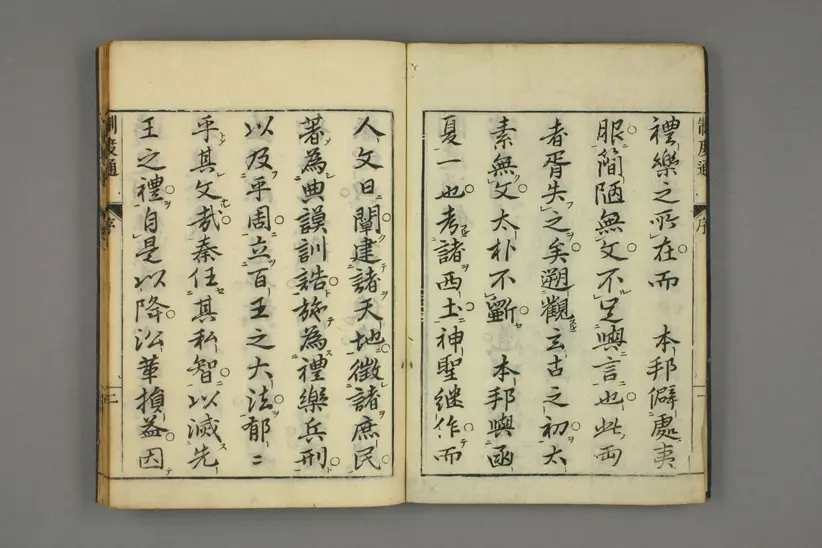 禮樂之所在而　本邦僻處夷
服簡陋無文不足與言也此兩
者胥失之矣遡觀玄古之初太
素無文太朴不斲　本邦與函
夏一也考諸西土神聖継作而
制度通　序　一
人文日闡建諸天地徵諸庶民
著為典謨訓誥施為禮樂兵刑
以及乎周立百王之大法郁〻
乎其文哉秦任其私智以滅先
王之禮自是以降沿革損益因
制度通　序　二